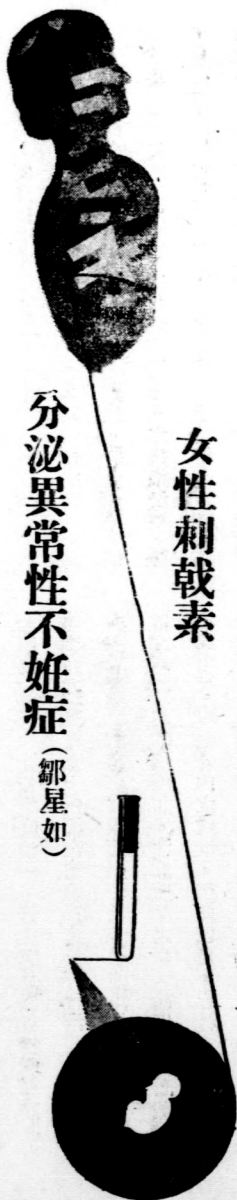 女性刺戟素
分泌異常性不妊症（鄒星如）